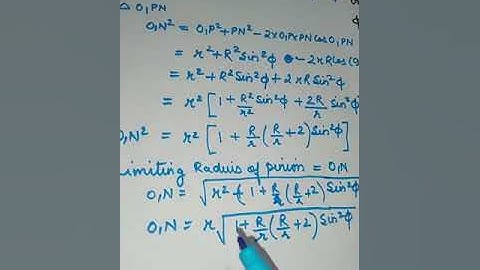 △ O₁PN
O₁N² = O₁P² + PN² - 2×O₁P×PN cos O₁PN
= r² + R² Sin²φ - 2rR Cos(9
= r² + R² Sin²φ + 2rR Sin²φ
= r² [1 + R²/r² Sin²φ + 2R/r Sin²φ
O₁N² = r² [1 + R/r (R/r + 2) Sin²φ]
imiting Raduis of pinion = O₁N
O₁N = √r² { 1 + R/r (R/r + 2) Sin²φ
O₁N = r √1 + R/r (R/r + 2) Sin²φ